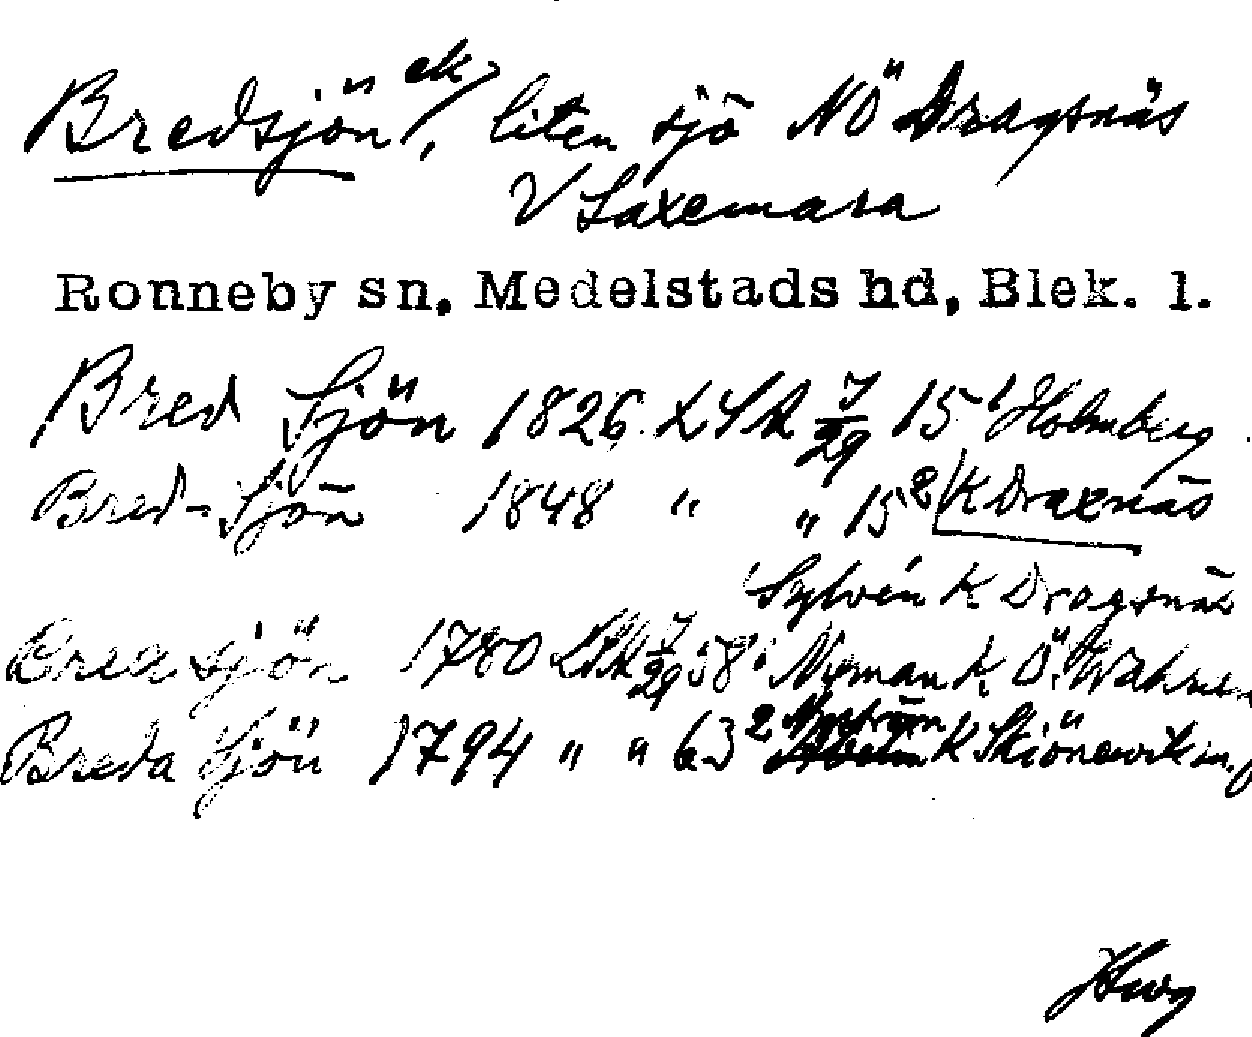 Bredsjön ek/, liten sjö NÖ Dragsnäs
V Saxemara
Ronneby sn, Medelstads hd, Blek. l.
Bred Sjön 1826 LSA 7/29 15¹ Holmberg
Bred-Sjön 1848 " " 15² K Draxnäs
Sylvén K Dragsnäs
Bredsjön 1780 LSA 7/29 58¹ Nyman K. Ö.
Breda Sjön 1794 " " 63² Nyström K